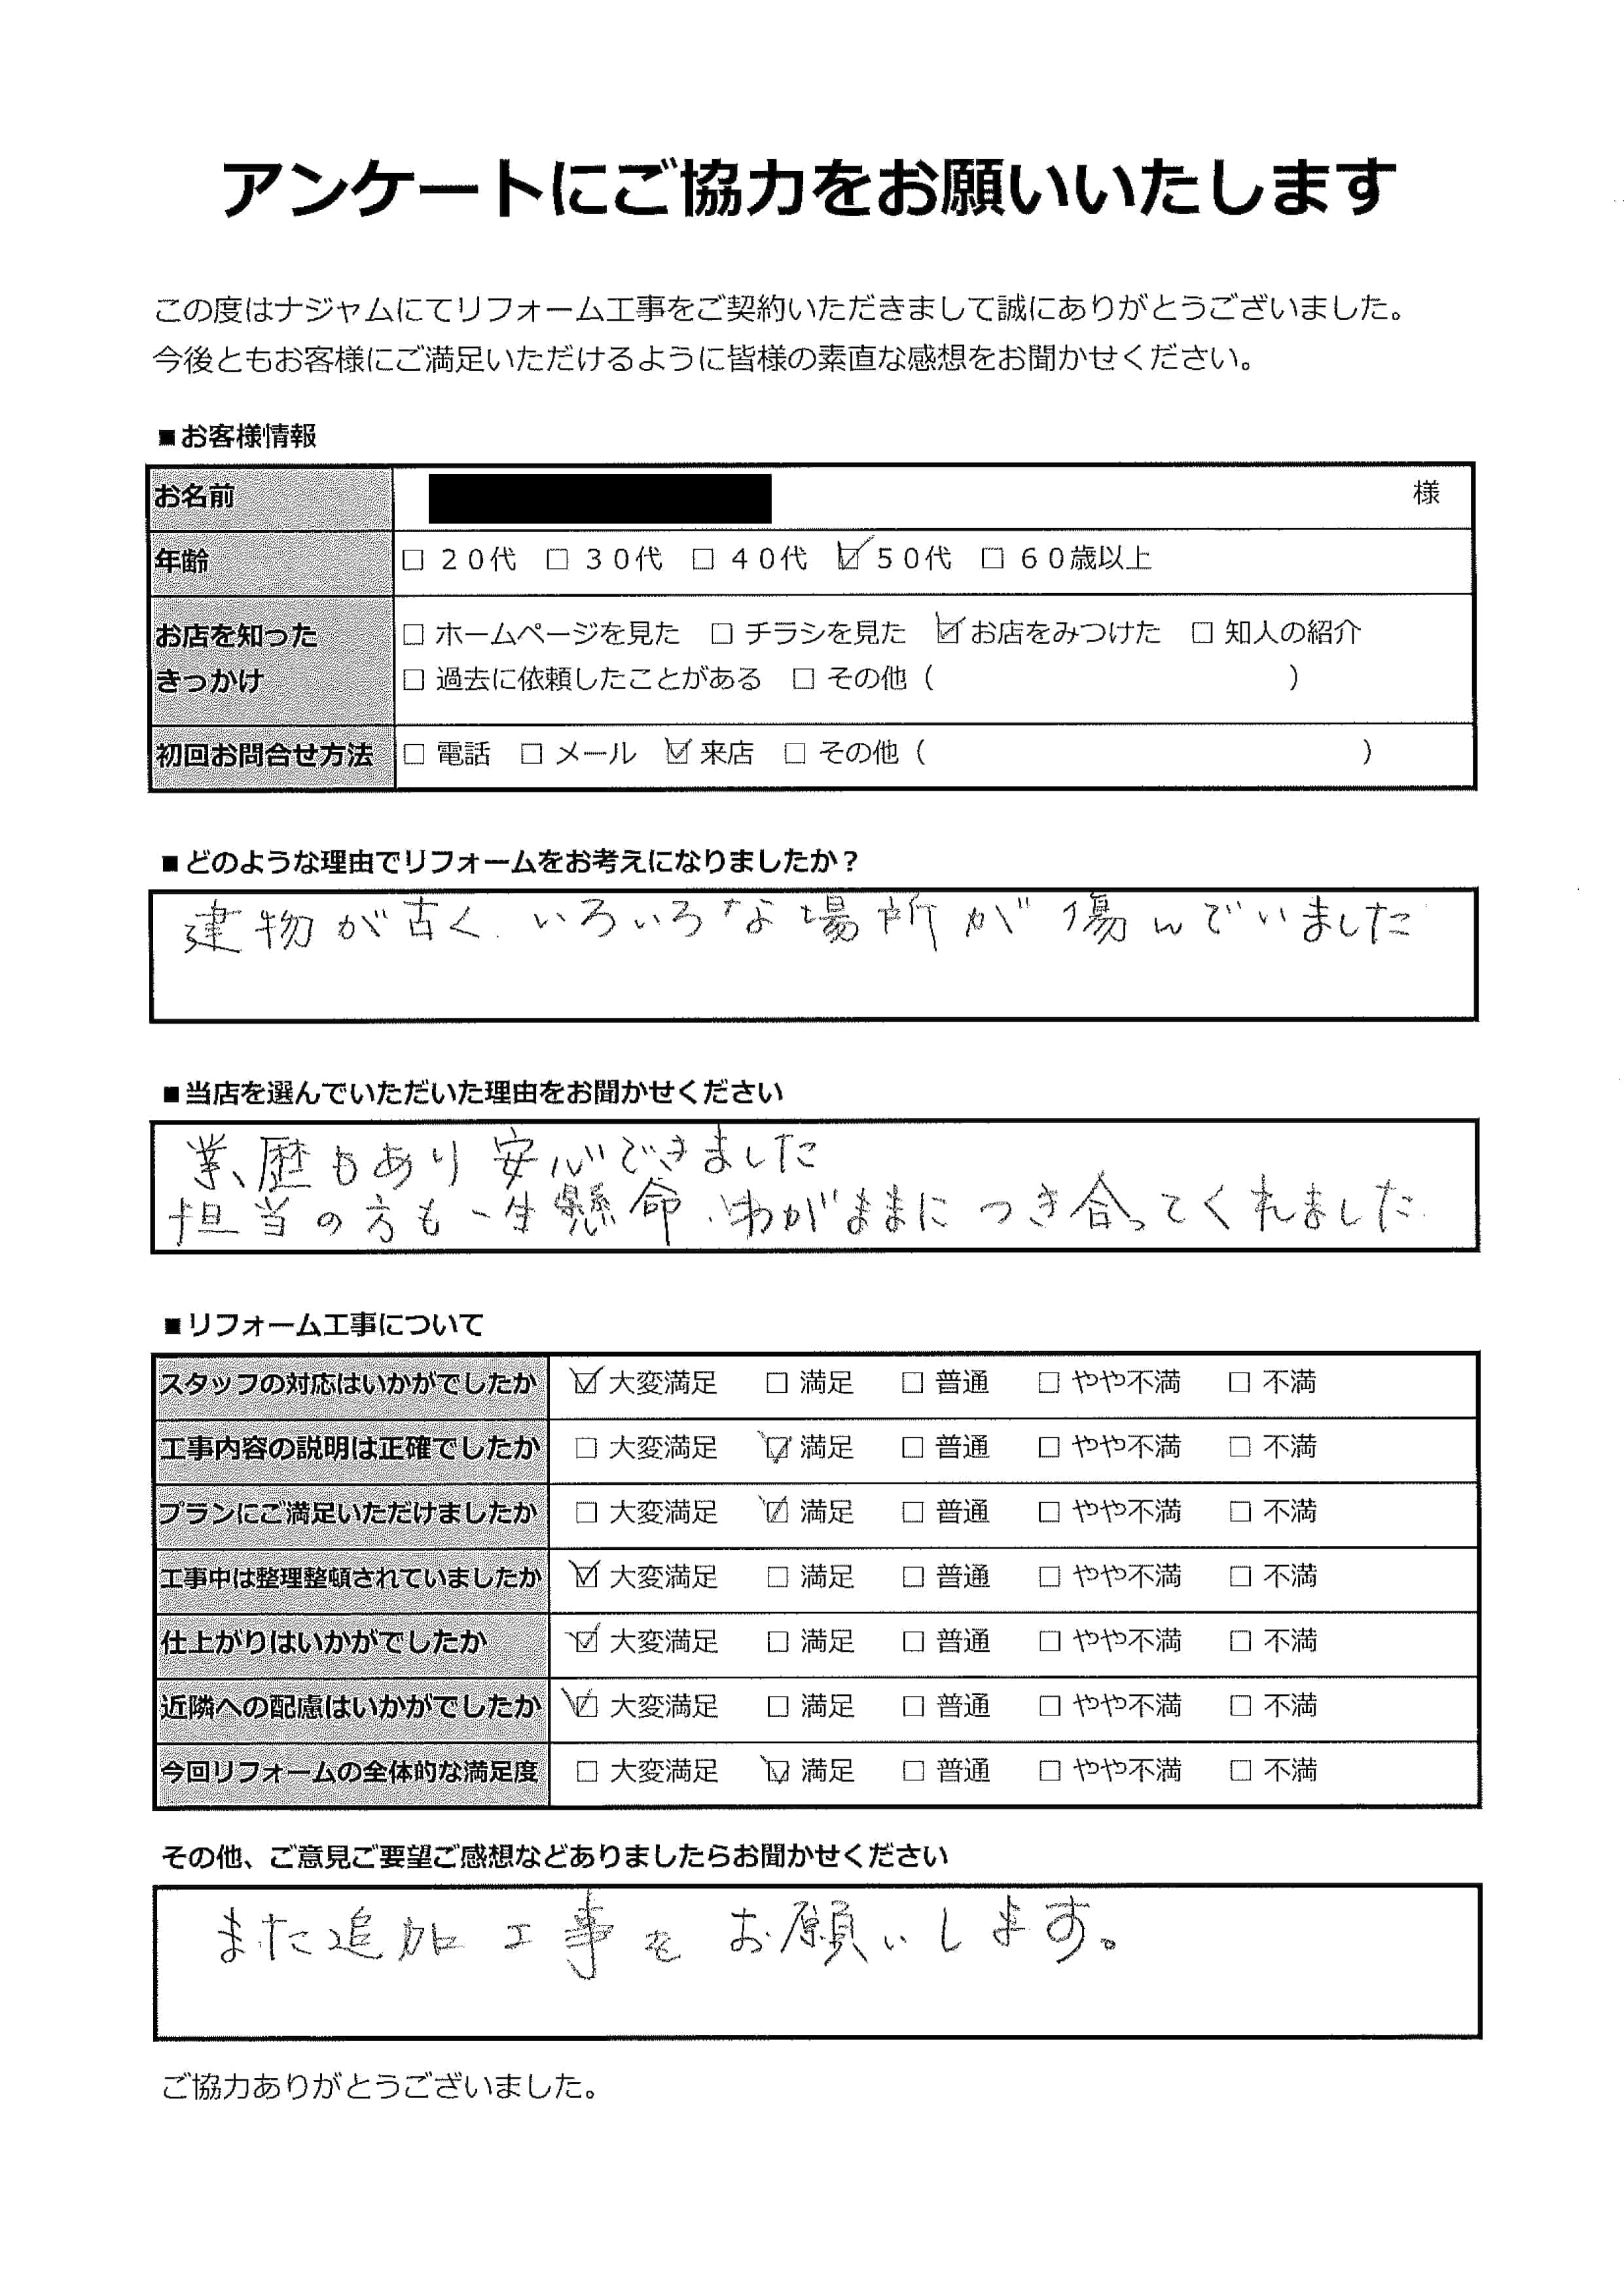 アンケートにご協力をお願いいたします
この度はナジャムにてリフォーム工事をご契約いただきまして誠にありがとうございました。
今後ともお客様にご満足いただけるように皆様の素直な感想をお聞かせください。
■お客様情報
お名前 様
年齢 □ 20代 □ 30代 □ 40代 ☑ 50代 □ 60歳以上
お店を知った □ ホームページを見た □ チラシを見た ☑ お店をみつけた □ 知人の紹介
きっかけ □ 過去に依頼したことがある □ その他（ ）
初回お問合せ方法 □ 電話 □ メール ☑ 来店 □ その他（ ）
■どのような理由でリフォームをお考えになりましたか？
建物が古く、いろいろな場所が傷んでいました
■当店を選んでいただいた理由をお聞かせください
業歴もあり安心できました
担当の方も一生懸命、わがままにつき合ってくれました
■リフォーム工事について
スタッフの対応はいかがでしたか ☑ 大変満足 □ 満足 □ 普通 □ やや不満 □ 不満
工事内容の説明は正確でしたか □ 大変満足 ☑ 満足 □ 普通 □ やや不満 □ 不満
プランにご満足いただけましたか □ 大変満足 ☑ 満足 □ 普通 □ やや不満 □ 不満
工事中は整理整頓されていましたか ☑ 大変満足 □ 満足 □ 普通 □ やや不満 □ 不満
仕上がりはいかがでしたか ☑ 大変満足 □ 満足 □ 普通 □ やや不満 □ 不満
近隣への配慮はいかがでしたか ☑ 大変満足 □ 満足 □ 普通 □ やや不満 □ 不満
今回リフォームの全体的な満足度 □ 大変満足 ☑ 満足 □ 普通 □ やや不満 □ 不満
その他、ご意見ご要望ご感想などありましたらお聞かせください
また追加工事をお願いします。
ご協力ありがとうございました。